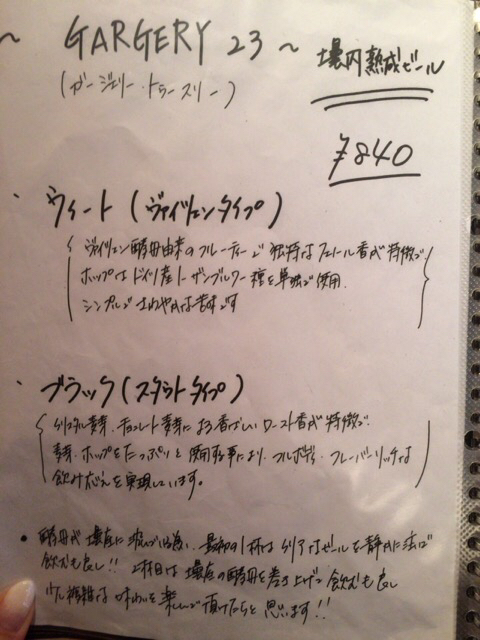 ~ GARGERY 23 ~ 壜内熟成ビール
(ガージェリー・トゥースリー)
¥840
・ウィート (ヴァイツェンタイプ)
ヴァイツェン酵母由来のフルーティーで独特なフェノール香が特徴で
ホップはドイツ産トラディショナル種を単独で使用
シンプルでさわやかな苦味です
・ブラック (スタウトタイプ)
クリスタル麦芽、チョコレート麦芽による香ばしいロースト香が特徴で
麦芽、ホップをたっぷりと使用する事により、フルボディ、フレーバーリッチな
飲み応えを実現しています。
● 酵母が壜底に沈んでいる為、最初の1杯はクリアなビールを静かに注ぎ
飲むも良し!! 2杯目は壜底の酵母を巻き上げて飲むも良し
少し複雑な味わいを楽しんで頂けたらと思います!!